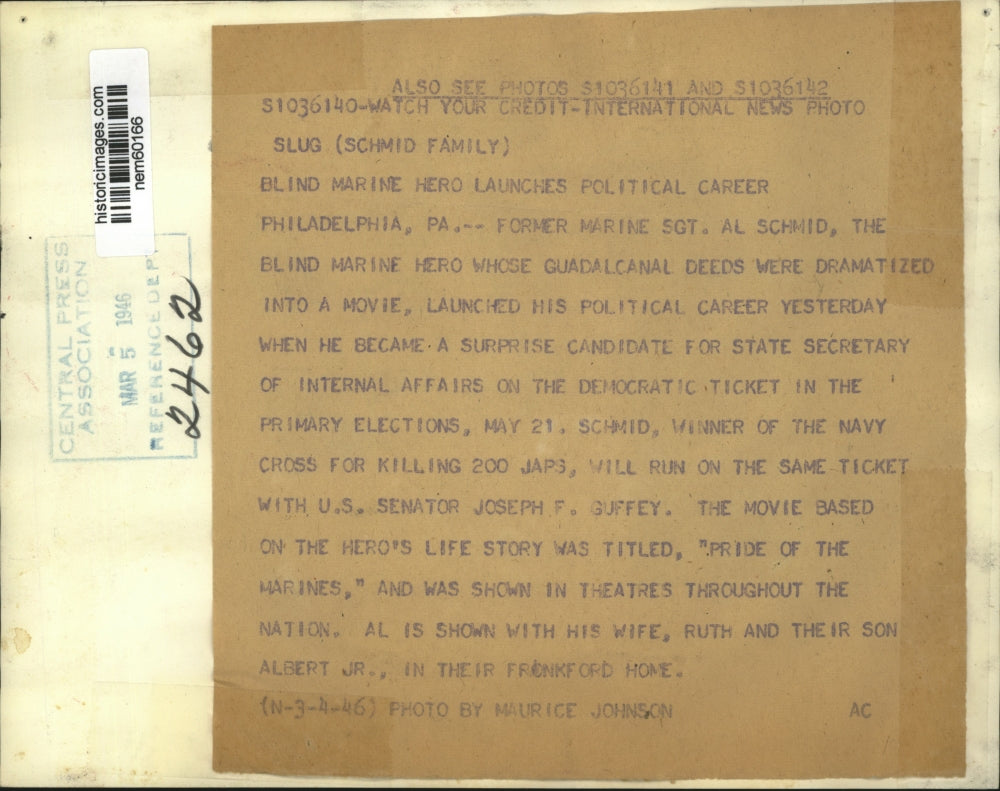 ALSO SEE PHOTOS S1036141 AND S1036142
S1036140-WATCH YOUR CREDIT-INTERNATIONAL NEWS PHOTO
SLUG (SCHMID FAMILY)
BLIND MARINE HERO LAUNCHES POLITICAL CAREER
PHILADELPHIA, PA.-- FORMER MARINE SGT. AL SCHMID, THE
BLIND MARINE HERO WHOSE GUADALCANAL DEEDS WERE DRAMATIZED
INTO A MOVIE, LAUNCHED HIS POLITICAL CAREER YESTERDAY
WHEN HE BECAME A SURPRISE CANDIDATE FOR STATE SECRETARY
OF INTERNAL AFFAIRS ON THE DEMOCRATIC TICKET IN THE
PRIMARY ELECTIONS, MAY 21. SCHMID, WINNER OF THE NAVY
CROSS FOR KILLING 200 JAPS, WILL RUN ON THE SAME TICKET
WITH U.S. SENATOR JOSEPH F. GUFFEY. THE MOVIE BASED
ON THE HERO'S LIFE STORY WAS TITLED, "PRIDE OF THE
MARINES," AND WAS SHOWN IN THEATRES THROUGHOUT THE
NATION. AL IS SHOWN WITH HIS WIFE, RUTH AND THEIR SON
ALBERT JR., IN THEIR FRONKFORD HOME.
(N-3-4-46) PHOTO BY MAURICE JOHNSON AC
historicimages.com
nem60166
CENTRAL PRESS
ASSOCIATION
MAR 5 1946
REFERENCE DEP
2462